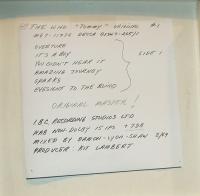 THE WHO "TOMMY" ORIGINAL #1
OVERTURE
IT'S A BOY
YOU DIDN'T HEAR IT
AMAZING JOURNEY
SPARKS
EYESIGHT TO THE BLIND
SIDE 1
ORIGINAL MASTER!
IBC RECORDING STUDIOS LTD
NAB NON-DOLBY 15 IPS
MIXED BY DAMON-LYON-SHAW 2/69
PRODUCER: KIT LAMBERT